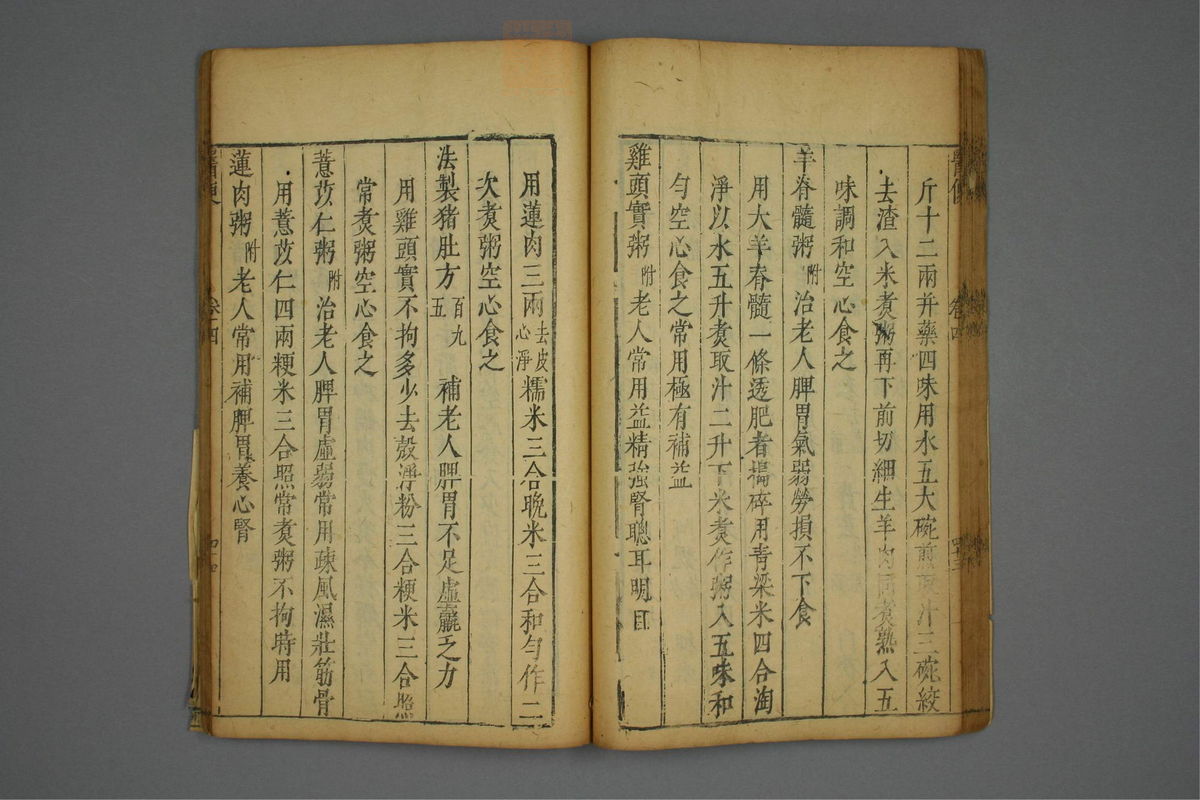 斤十二兩并藥四味用水五大碗煎取汁三碗絞
去渣入米煑粥再下前切細生羊肉同煑熟入五
味調和空心食之
羊脊髓粥附治老人脾胃氣弱勞損不下食
用大羊脊髓一條透肥者搗碎用青梁米四合淘
淨以水五升煑取汁二升下米煑作粥入五味和
勻空心食之常用極有補益
雞頭實粥附老人常用益精強腎聰耳明目
用雞頭實不拘多少去殼淨粉三合粳米三合照
常煑粥空心食之
薏苡仁粥附治老人脾胃虛弱常用疎風濕壯筋骨
用薏苡仁四兩粳米三合照常煑粥不拘時用
蓮肉粥附老人常用補脾胃養心腎
用蓮肉三兩去皮心淨糯米三合晚米三合和勻作二
次煑粥空心食之
法製猪肚方百九五補老人脾胃不足虛羸乏力
醫便
卷十四
四十四